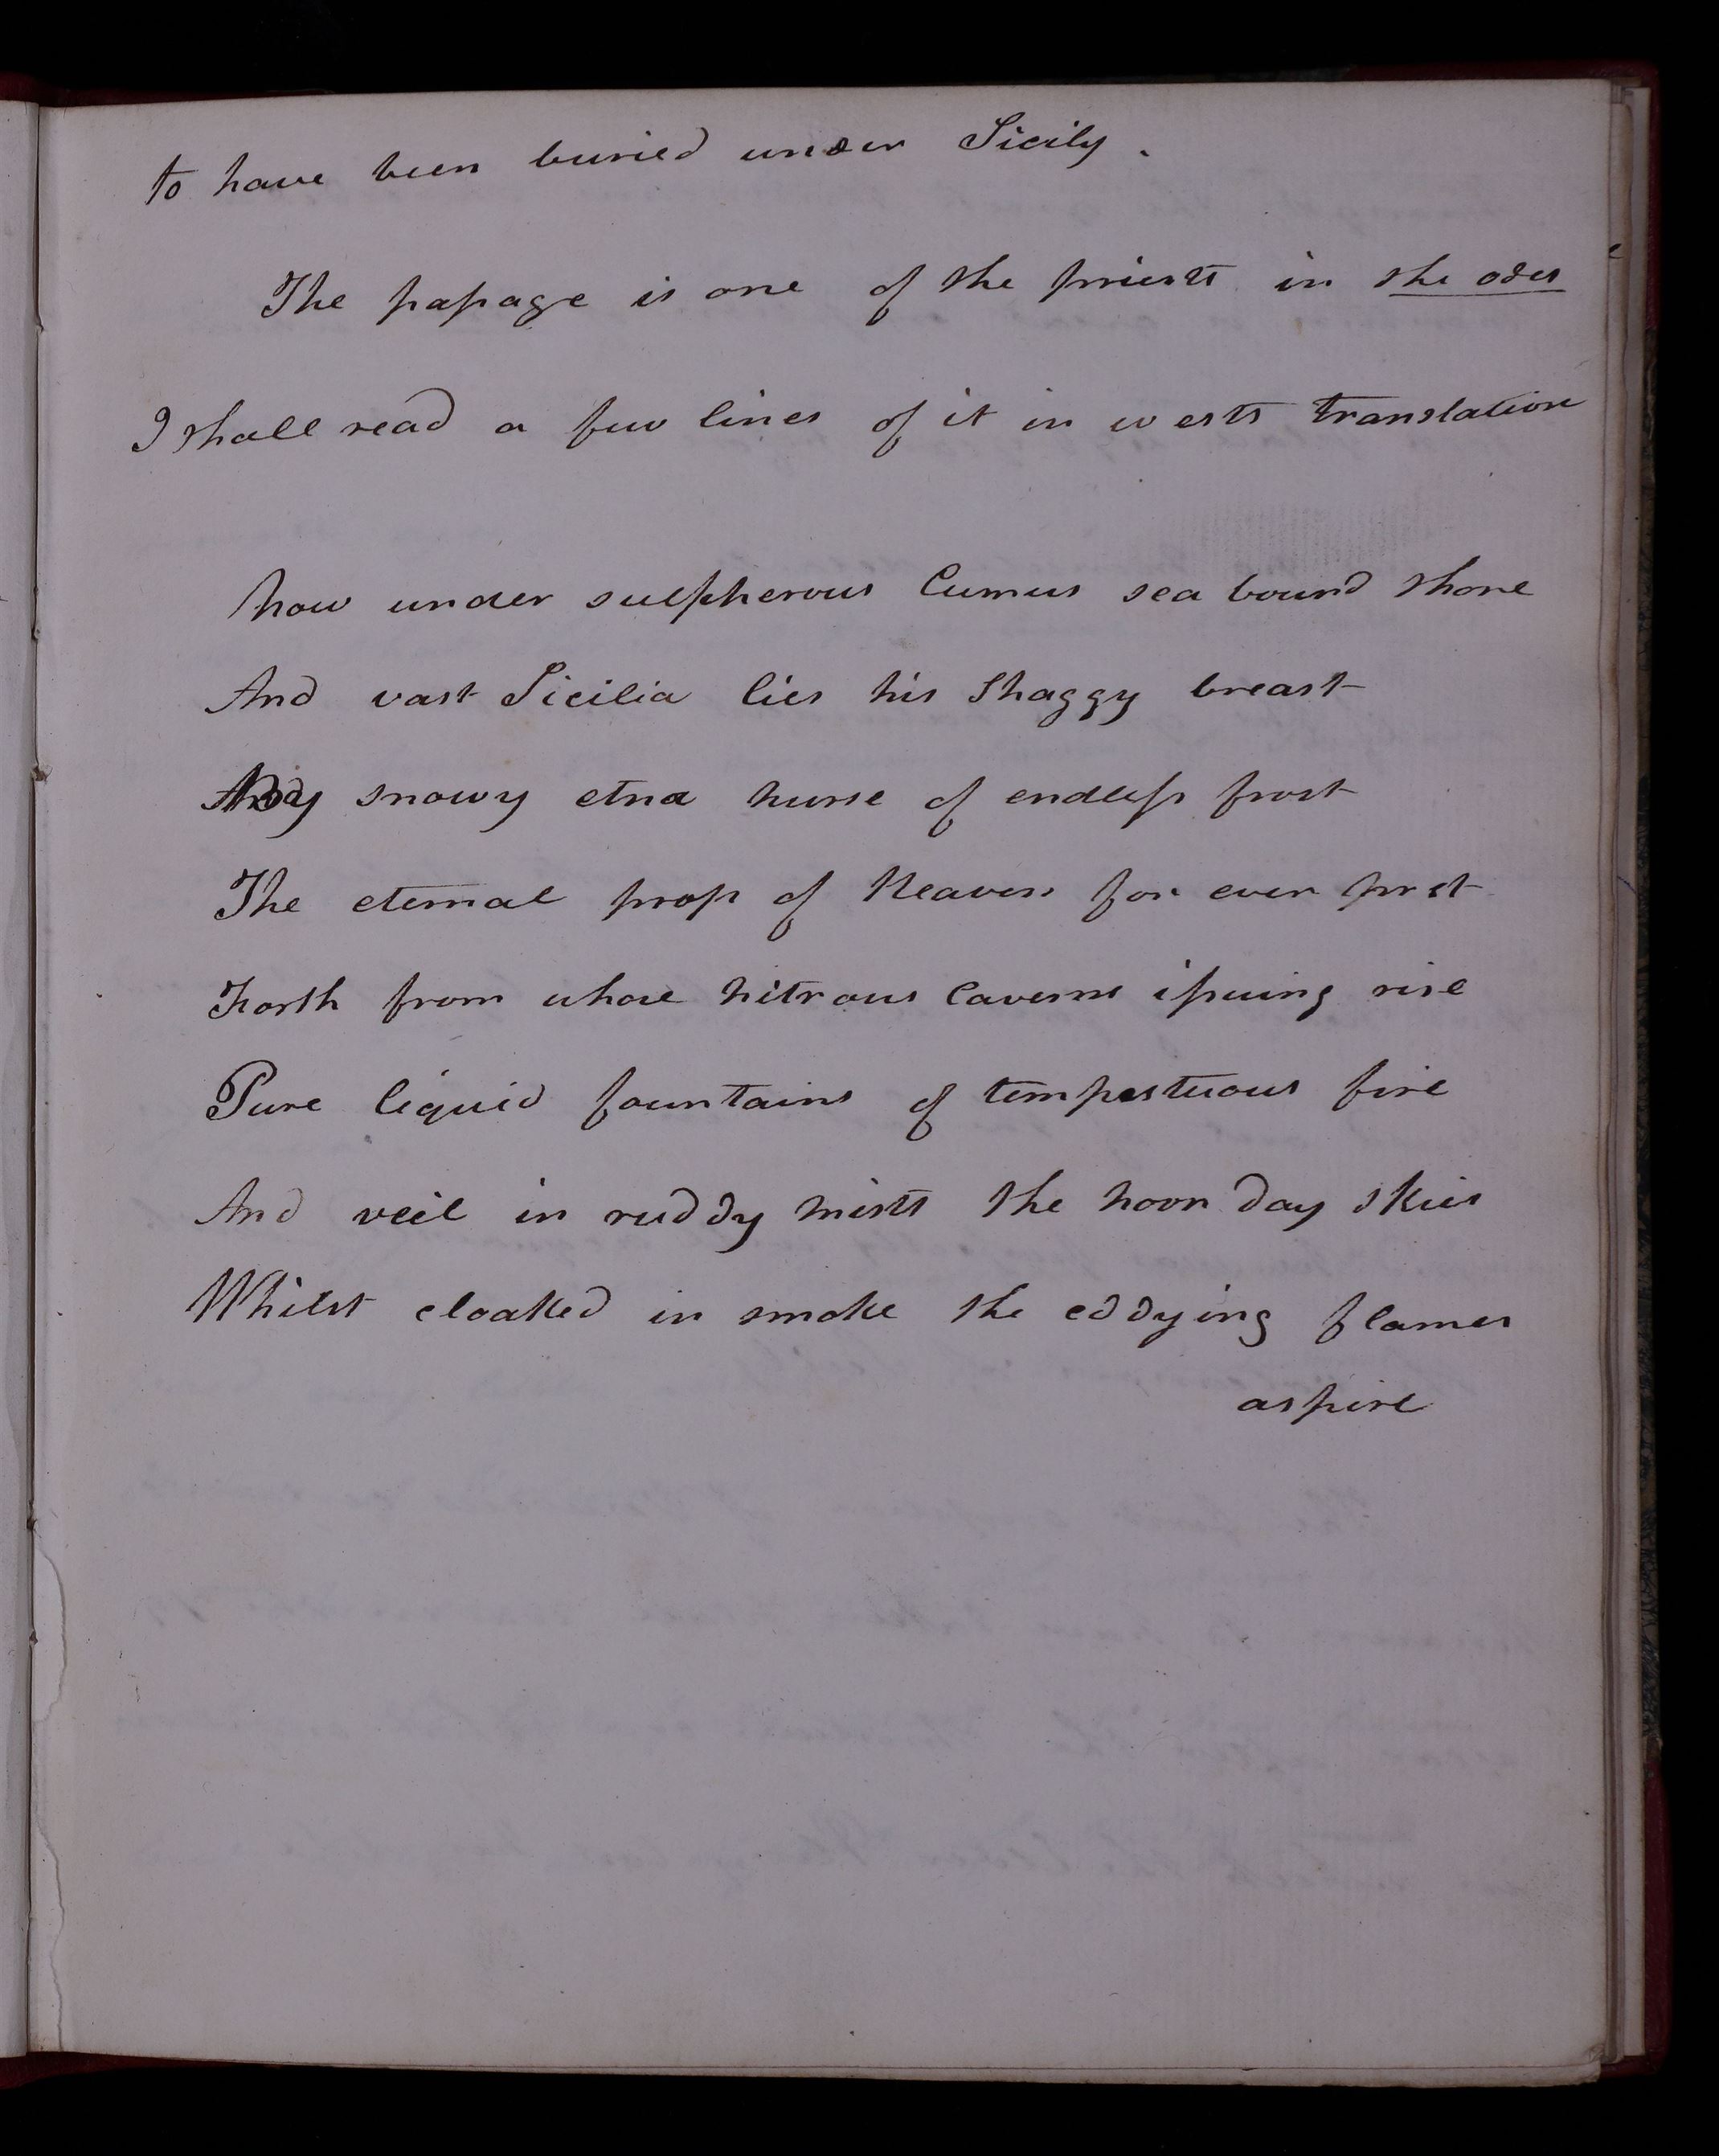 to have been buried under Sicily.
The paſsage is one of the priests in the odes
I shall read a few lines of it in wests translation
Now under sulpherous Cumus sea bound shore
And vast Sicilia lies his shaggy breast
By snowy etna nurse of endleſs frost
The eternal prop of Heaven for ever prest
Forth from whose nitrous Caverns iſsuing rise
Pure liquid fountains of tempestuous fire
And veil in ruddy mists the noon day skies
Whilst cloaked in smoke the eddying flames
aspire